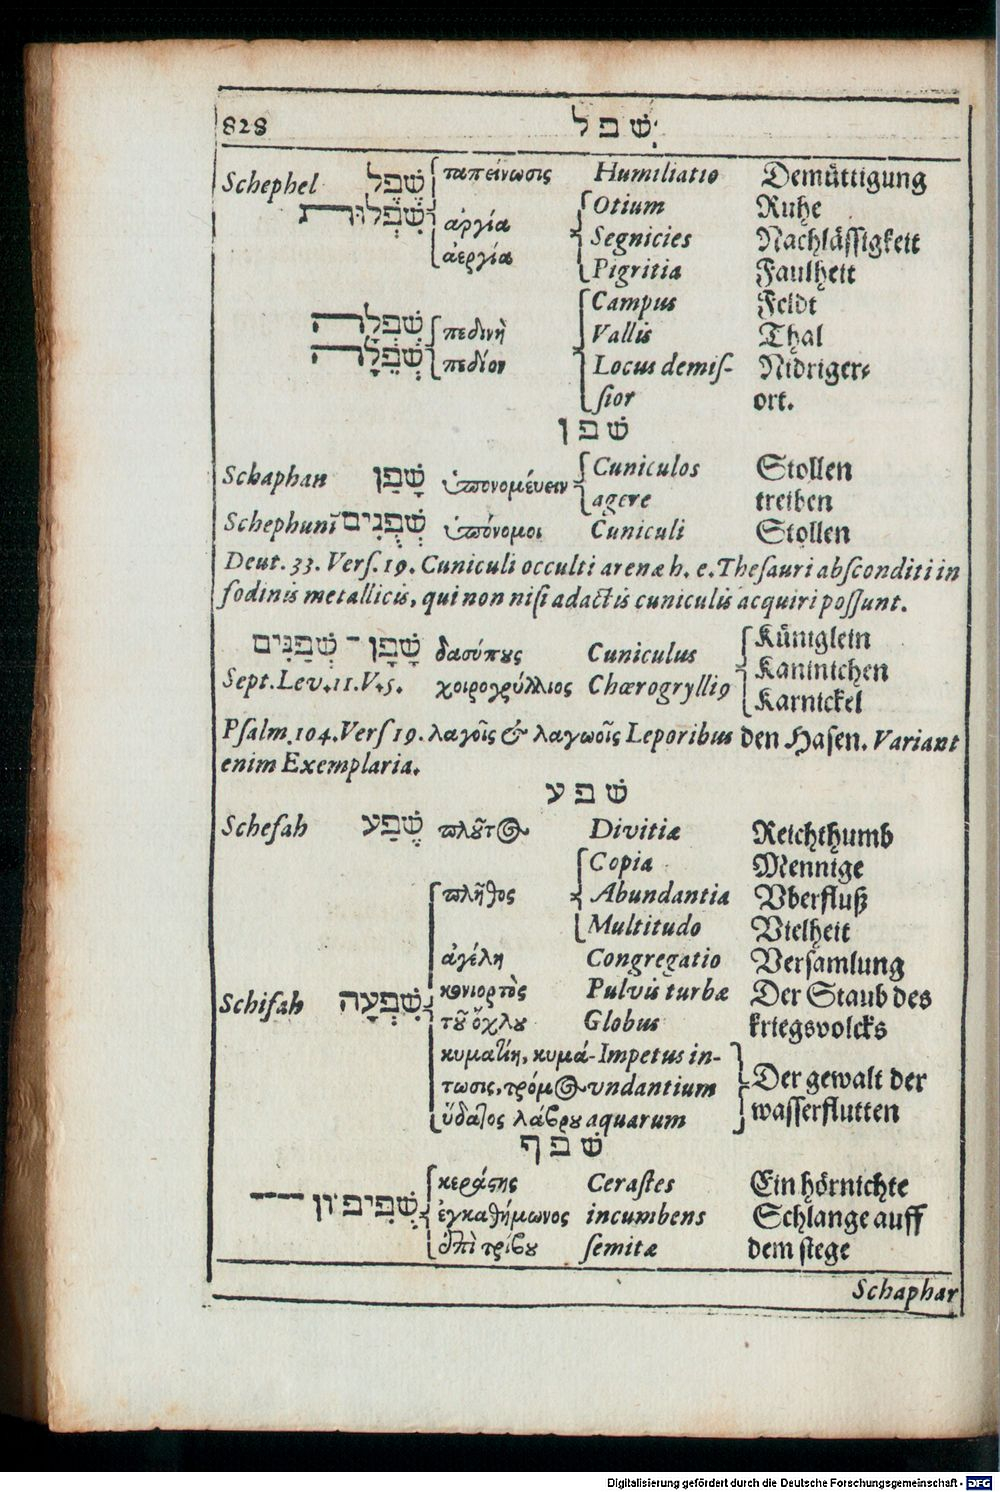 828 שׁפל
Schephel שֶׁפֶל ταπείνωσις Humiliatio Demüttigung
שִׁפְלוּת Otium Ruhe
ἀργία Segnicies Nachlässigkeit
ἀεργία Pigritia Faulheit
Campus Feldt
שְׁפְלָה πεδινὴ Vallis Thal
שְׁפֵלָה πεδίον Locus demiſ- Nidriger-
ſior ort.
שׁפן
Schaphan שָׁפַן ὑπονομέυειν Cuniculos Stollen
agere treiben
Schephunĩ שְׁפֻנִים ὑπόνομοι Cuniculi Stollen
Deut. 33. Verſ. 19. Cuniculi occulti arenæ h. e. Theſauri abſconditi in
fodinis metallicis, qui non niſi adactis cuniculis acquiri poſſunt.
שָׁפָן - שְׁפַנִּים δασύπους Cuniculus Küniglein
Kaninichen
Sept. Lev. 11. V. 5. χοιρογρύλλιος Chœrogrylliꝰ Karnickel
Pſalm. 104. Verſ 19. λαγοῖς & λαγωοῖς Leporibus den Haſen. Variant
enim Exemplaria.
שׁפע
Schefah שֶׁפַע πλοῦτος Divitiæ Reichthumb
Copia Mennige
πλῆθος Abundantia Vberfluß
Multitudo Vielheit
ἀγέλη Congregatio Verſamlung
Schifah שִׁפְעָה κονιορτὸς Pulvis turbæ Der Staub des
τοῦ ὄχλου Globus kriegsvolcks
κυματίη, κυμά- Impetus in-
τωσις, τρόμος undantium Der gewalt der
ὕδατος λάβρου aquarum waſſerflutten
שׁפף
κεράστης Ceraſtes Ein hörnichte
שְׁפִיפוֹן ἐγκαθήμωνος incumbens Schlange auff
ἐπὶ τρίβου ſemitæ dem ſtege
Schaphar
Digitalisierung gefördert durch die Deutsche Forschungsgemeinschaft - DFG